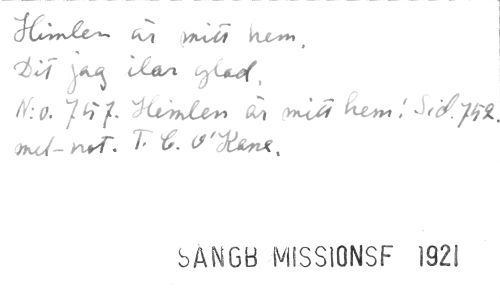 Himlen är mitt hem.
Dit jag ilar glad.
N:o. 757. Himlen är mitt hem! Sid. 752.
met-not. T. C. O'Kane.
SANGB MISSIONSF 1921